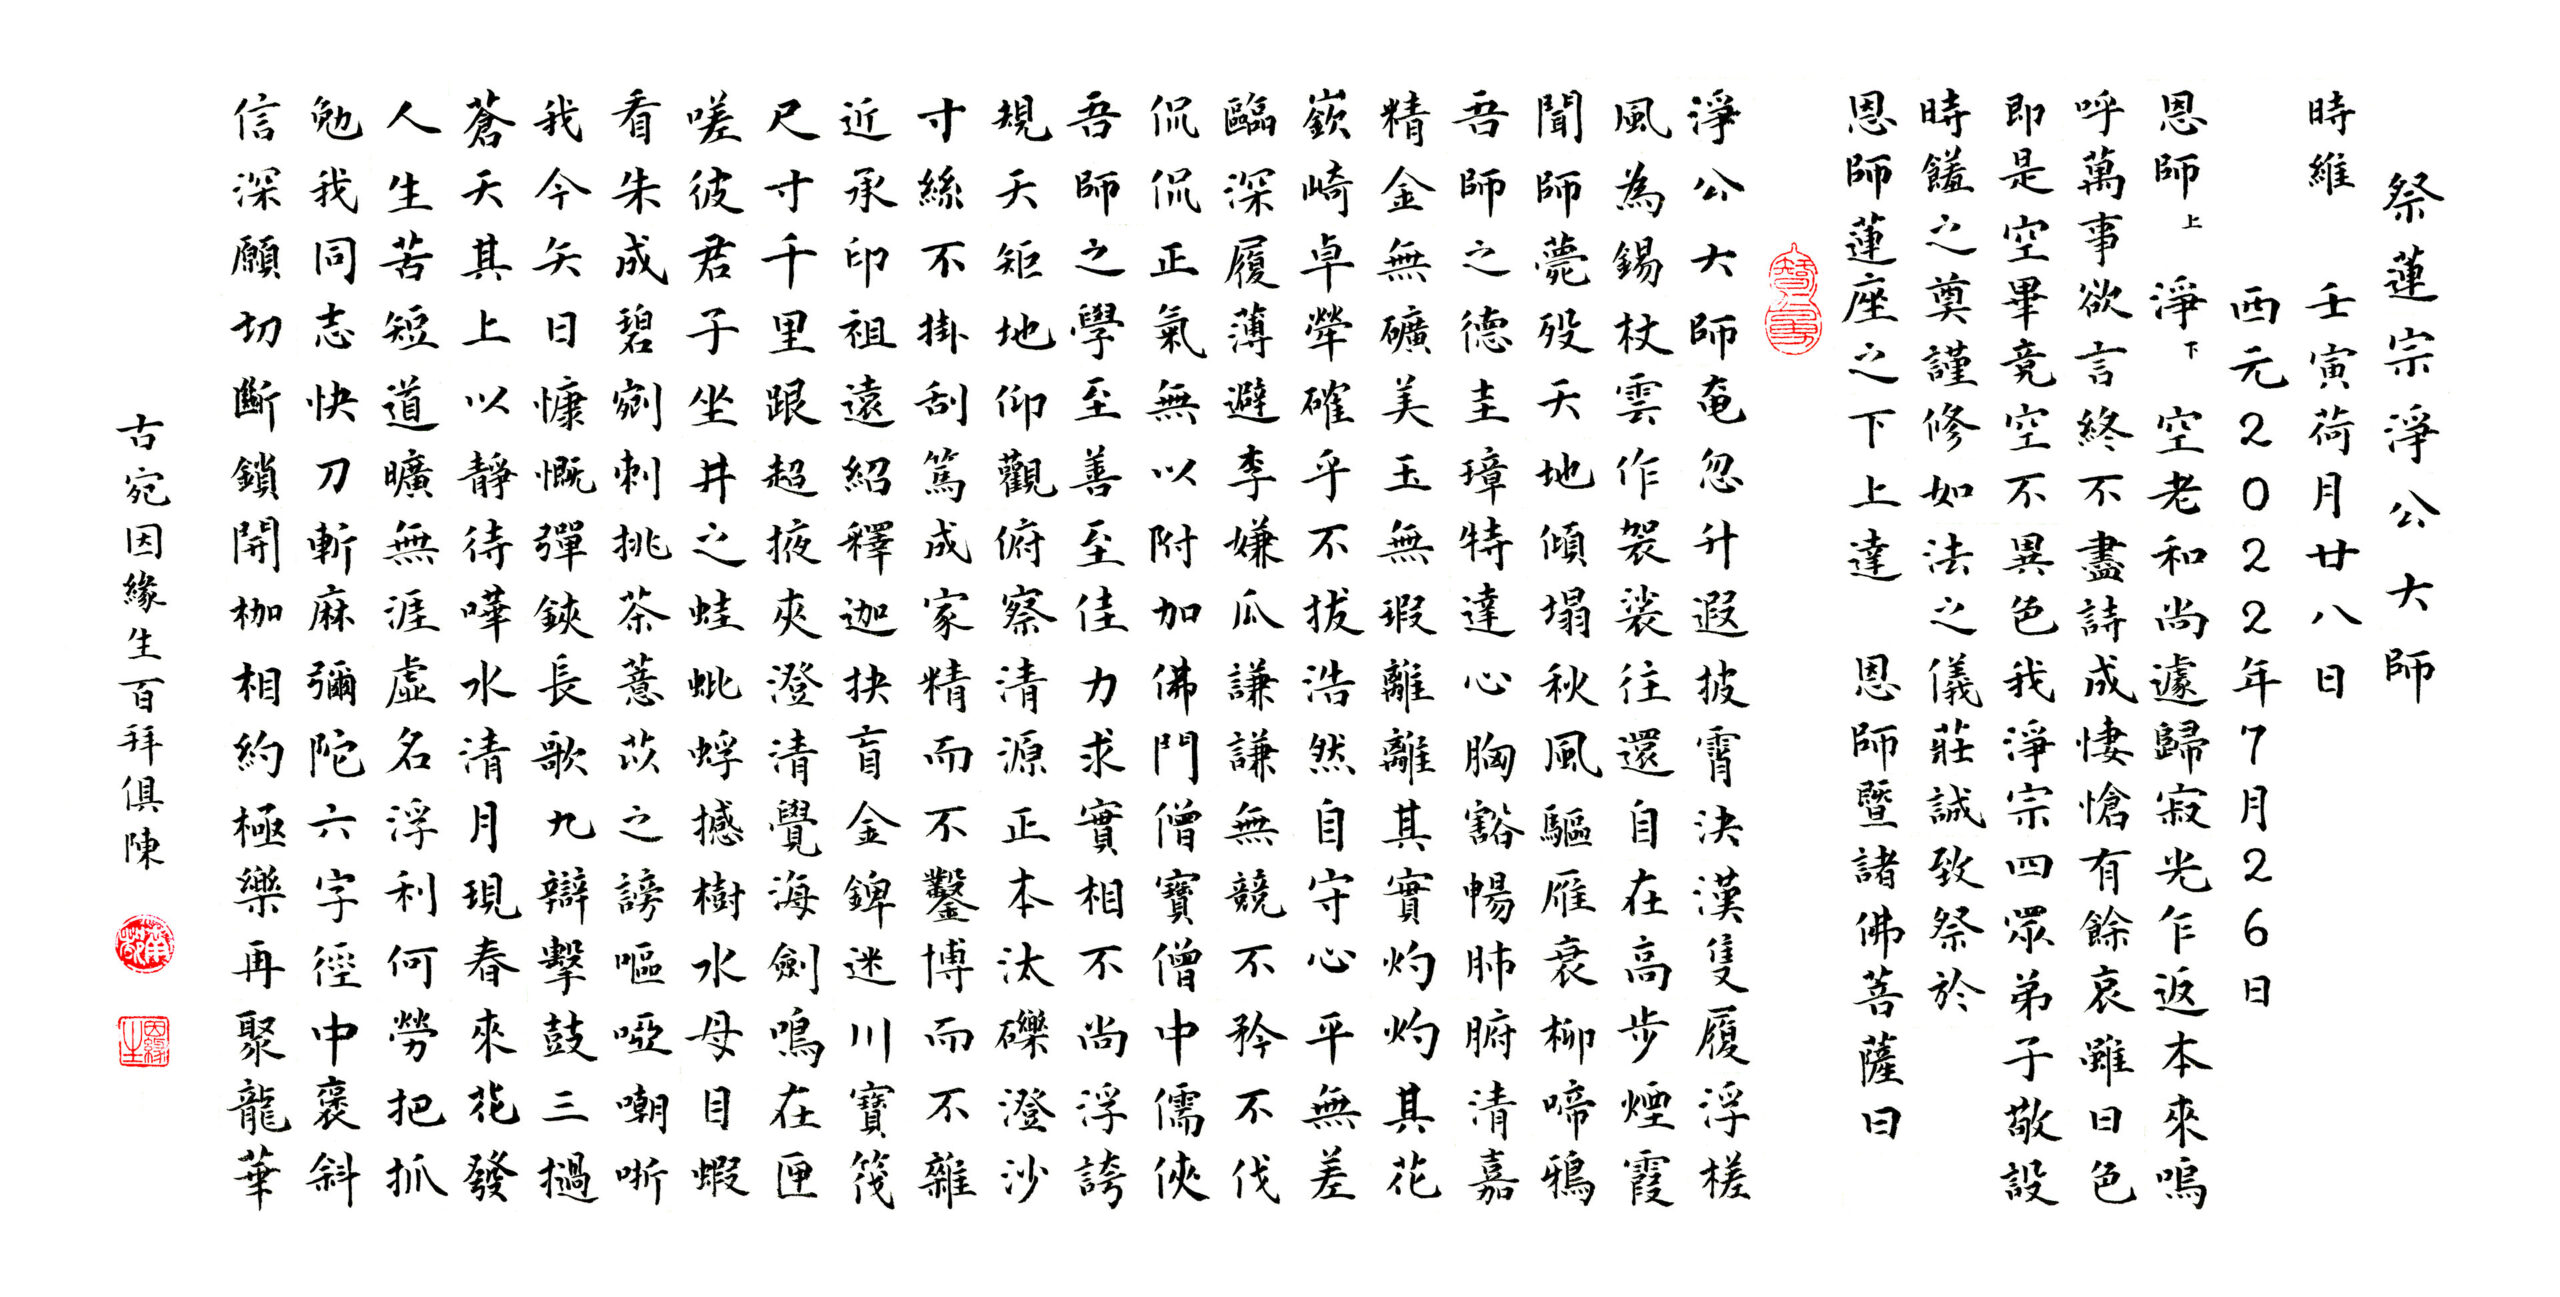 祭蓮宗淨公大師
時維 壬寅荷月廿八日
西元2022年7月26日
恩師上 淨下 空老和尚遽歸寂光乍返本來嗚
呼萬事欲言終不盡詩成悽愴有餘哀雖曰色
即是空畢竟空不異色我淨宗四眾弟子敬設
時饈之奠謹修如法之儀莊誠致祭於
恩師蓮座之下上達 恩師暨諸佛菩薩曰
淨公大師奄忽升遐披霄決漢隻履浮槎
風為錫杖雲作袈裟往還自在高步煙霞
聞師薨歿天地傾塌秋風驅雁衰柳啼鴉
吾師之德圭璋特達心胸豁暢肺腑清嘉
精金無礦美玉無瑕離離其實灼灼其花
嶔崎卓犖確乎不拔浩然自守心平無差
臨深履薄避李嫌瓜謙謙無競不矜不伐
侃侃正氣無以附加佛門僧寶僧中儒俠
吾師之學至善至佳力求實相不尚浮誇
規天矩地仰觀俯察清源正本汰礫澄沙
寸絲不掛刮篤成家精而不鑿博而不雜
近承印祖遠紹釋迦抉盲金錍迷川寶筏
尺寸千里跟超掖夾澄清覺海劍鳴在匣
嗟彼君子坐井之蛙蚍蜉撼樹水母目蝦
看朱成碧剜刺挑茶薏苡之謗嘔啞嘲哳
我今矢日慷慨彈鋏長歌九辯擊鼓三撾
蒼天其上以靜待嘩水清月現春來花發
人生苦短道曠無涯虛名浮利何勞把抓
勉我同志快刀斬麻彌陀六字徑中褒斜
信深願切斷鎖開枷相約極樂再聚龍華
古宛因緣生百拜俱陳
因緣生